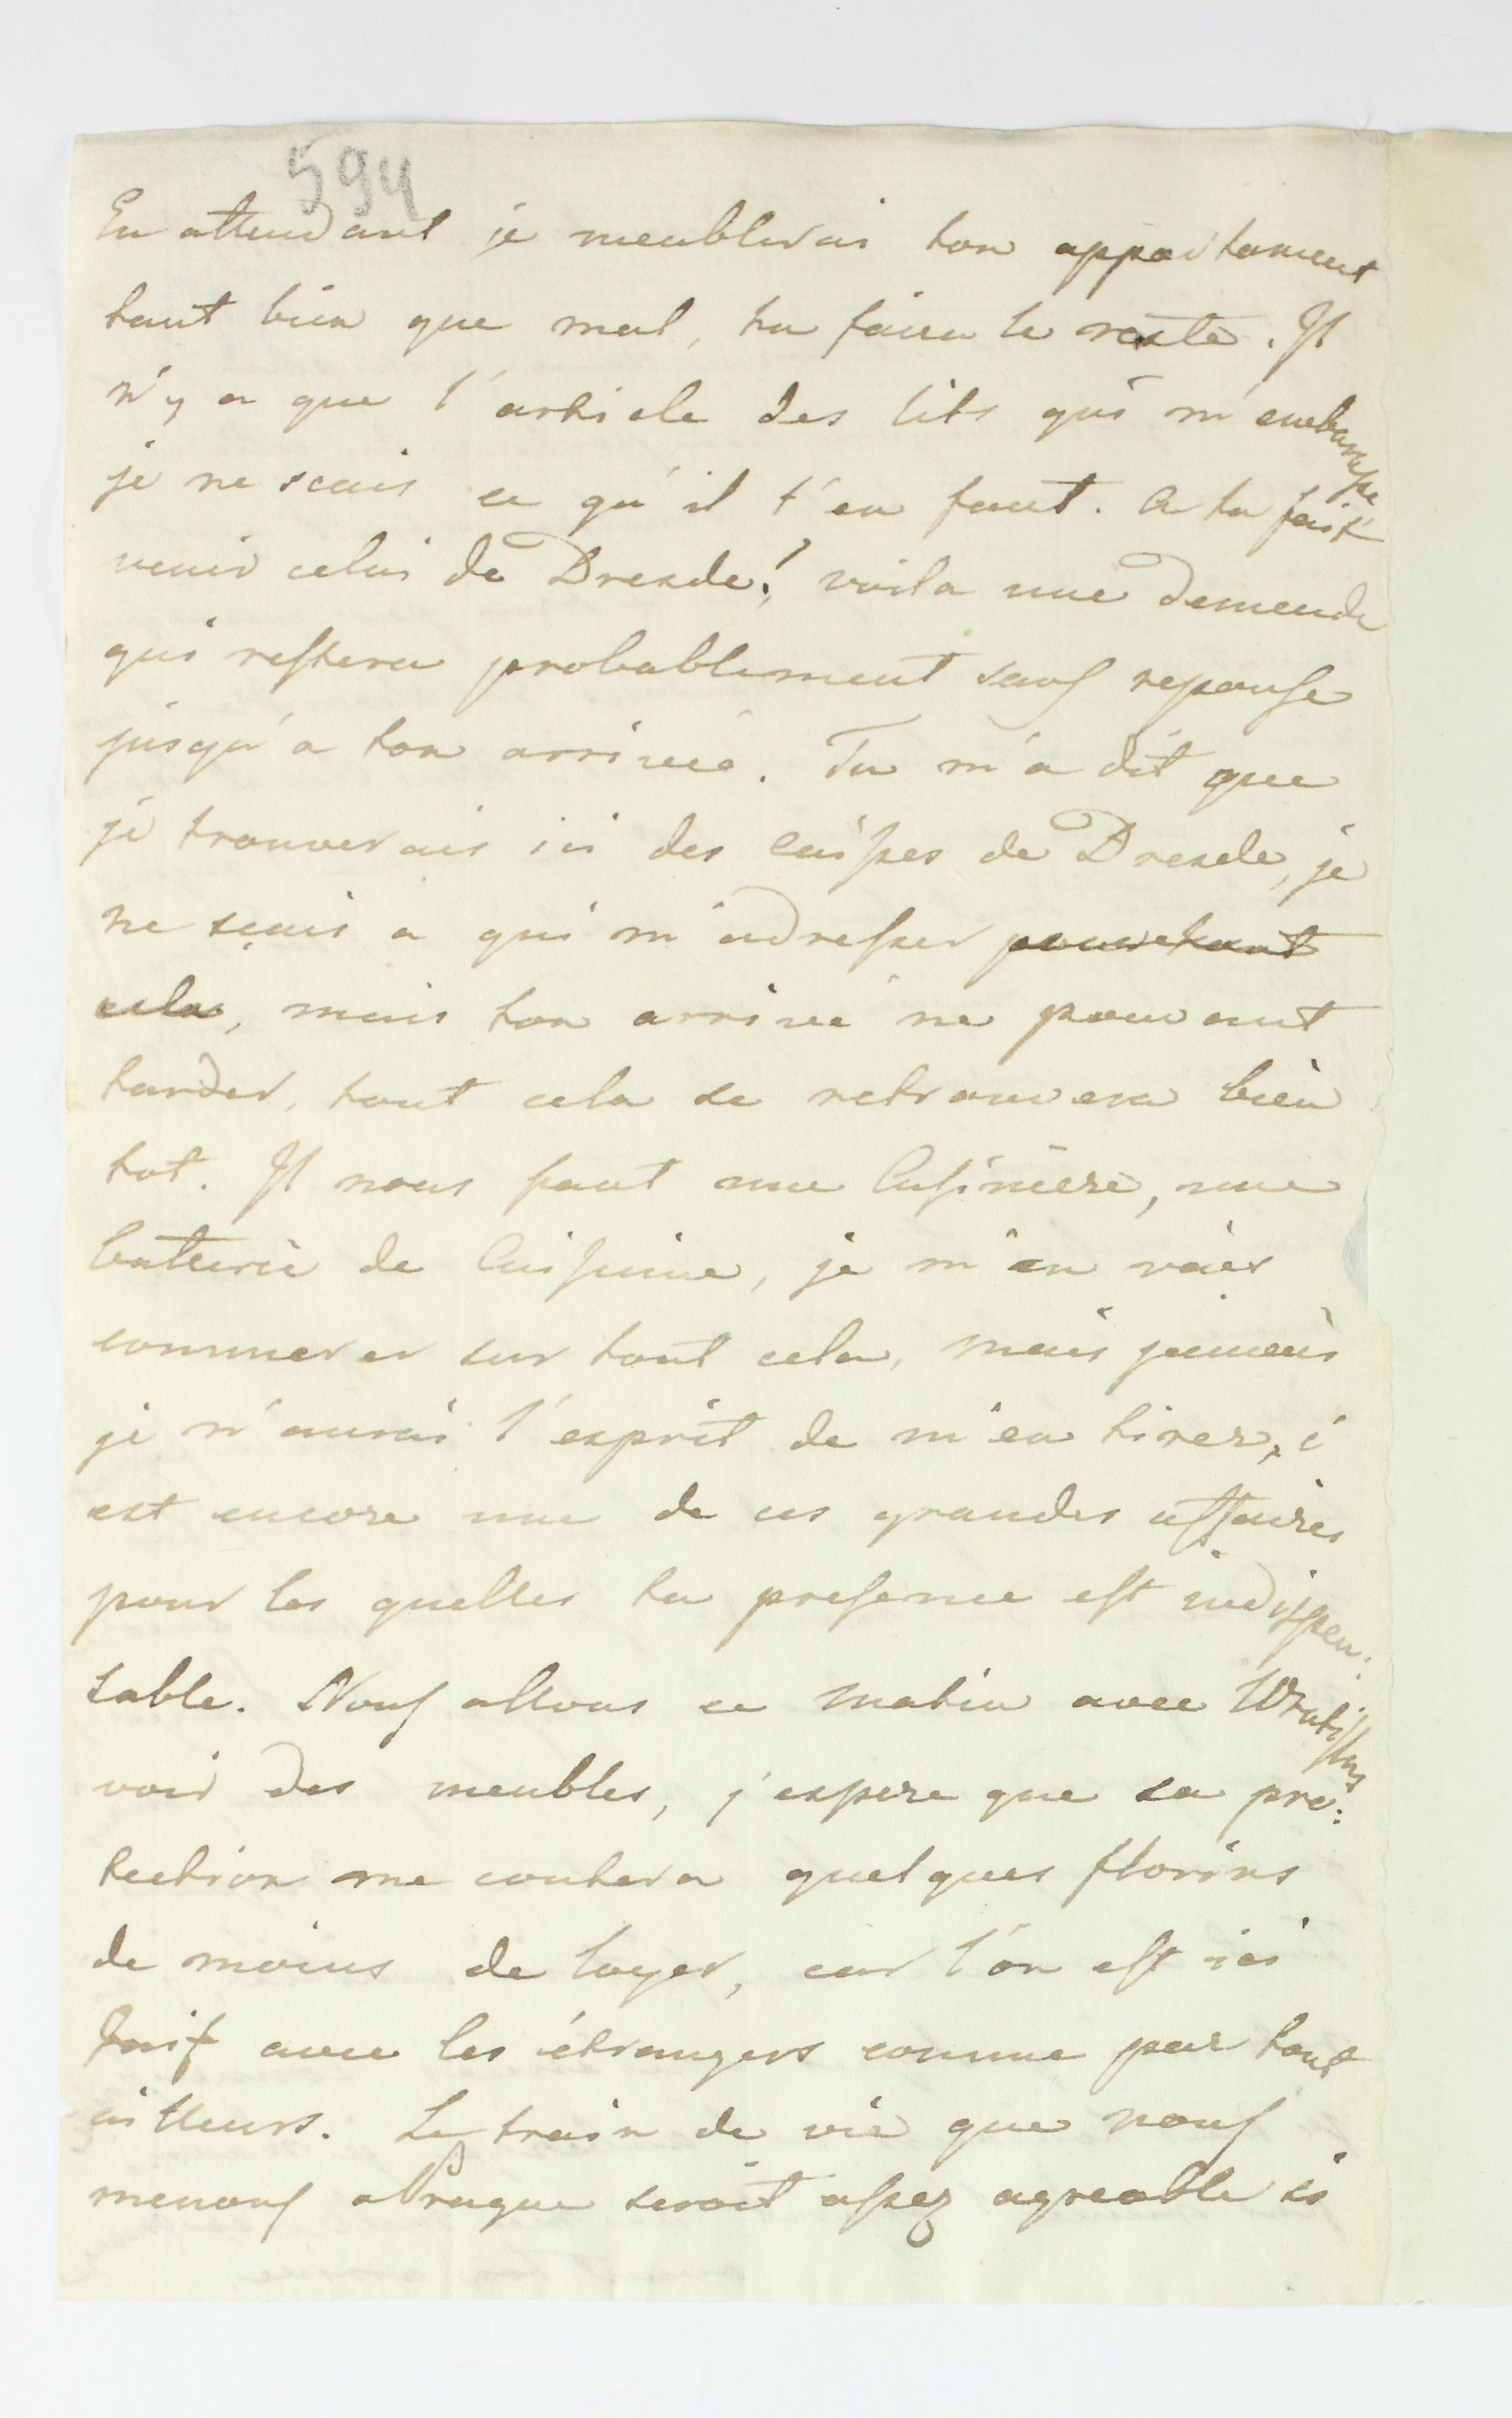 594
En attendant je meublerai ton appartement
tant bien que mal, tu faira le reste. Il
n'y a que l'article des lits qui m'embarasse
je ne scais ce qu'il t'en faut. A tu fait
venir celui de Dresde? voila une demende
qui restera probablement sans reponse
jusqu'a ton arriveé. Tu m'a dit que
je trouverais ici des Caisses de Dresde, je
ne sçais a qui m'adresser pour tout
cela, mais ton arriveé ne pouvant
tarder, tout cela se retrouvera bien
tot. Il nous faut une Cusiniere, une
batterie de Cuisinie, je m'en vais
commerer sur tout cela, mais jamais
je n'aurai l'esprit de m'en tirer, c'
est encore une de ces grandes affaires
pour les quelles ta presence est indispen:
sable. Nous allons ce matin avec Wratislas
voir des meubles, j'espere que sa pro:
tection me coutera quelques florins
de moins de loyer, car l'on est ici
Juif avec les étrangers comme par tout
ailleurs. Le train de vie que nous
menons a Prague seroit assez agreable si